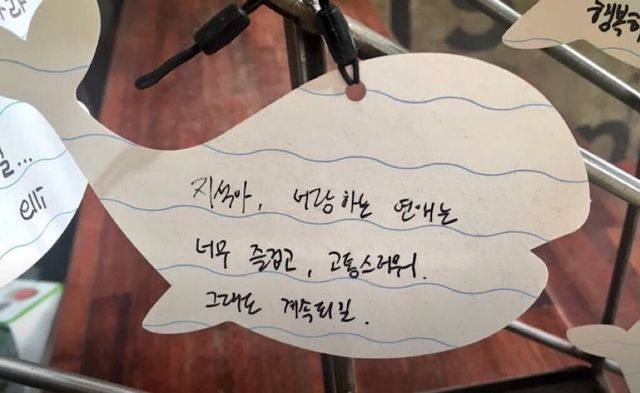 행복하
라
길...
ells
지석아, 너랑 하는 연애는
너무 즐겁고, 고통스러워.
그래도 계속되길.